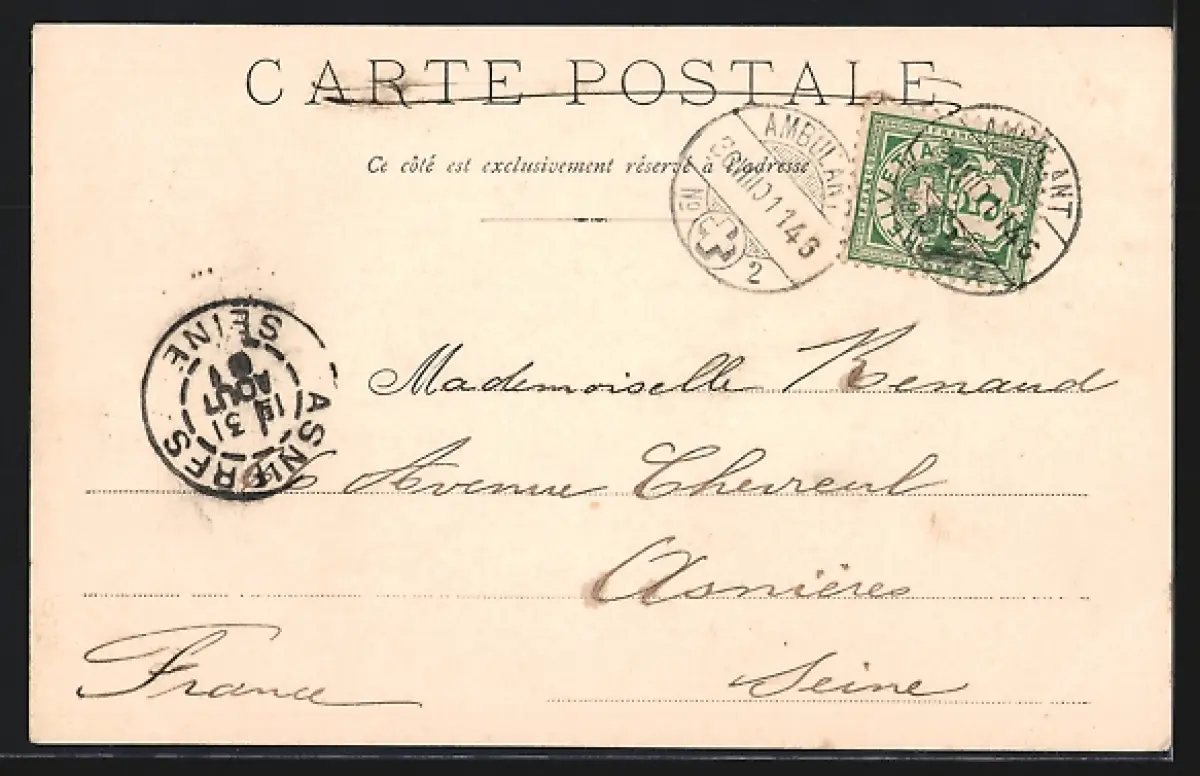 CARTE POSTALE
Ce côté est exclusivement réservé à l'adresse
AMBULANT
No 2
AMBULANT
HELVETIA
FRANCO
5
ASNIERES
SEINE
31
AOUT
01
Mademoiselle Renaud
Avenue Chevreul
Asnières
Seine
France